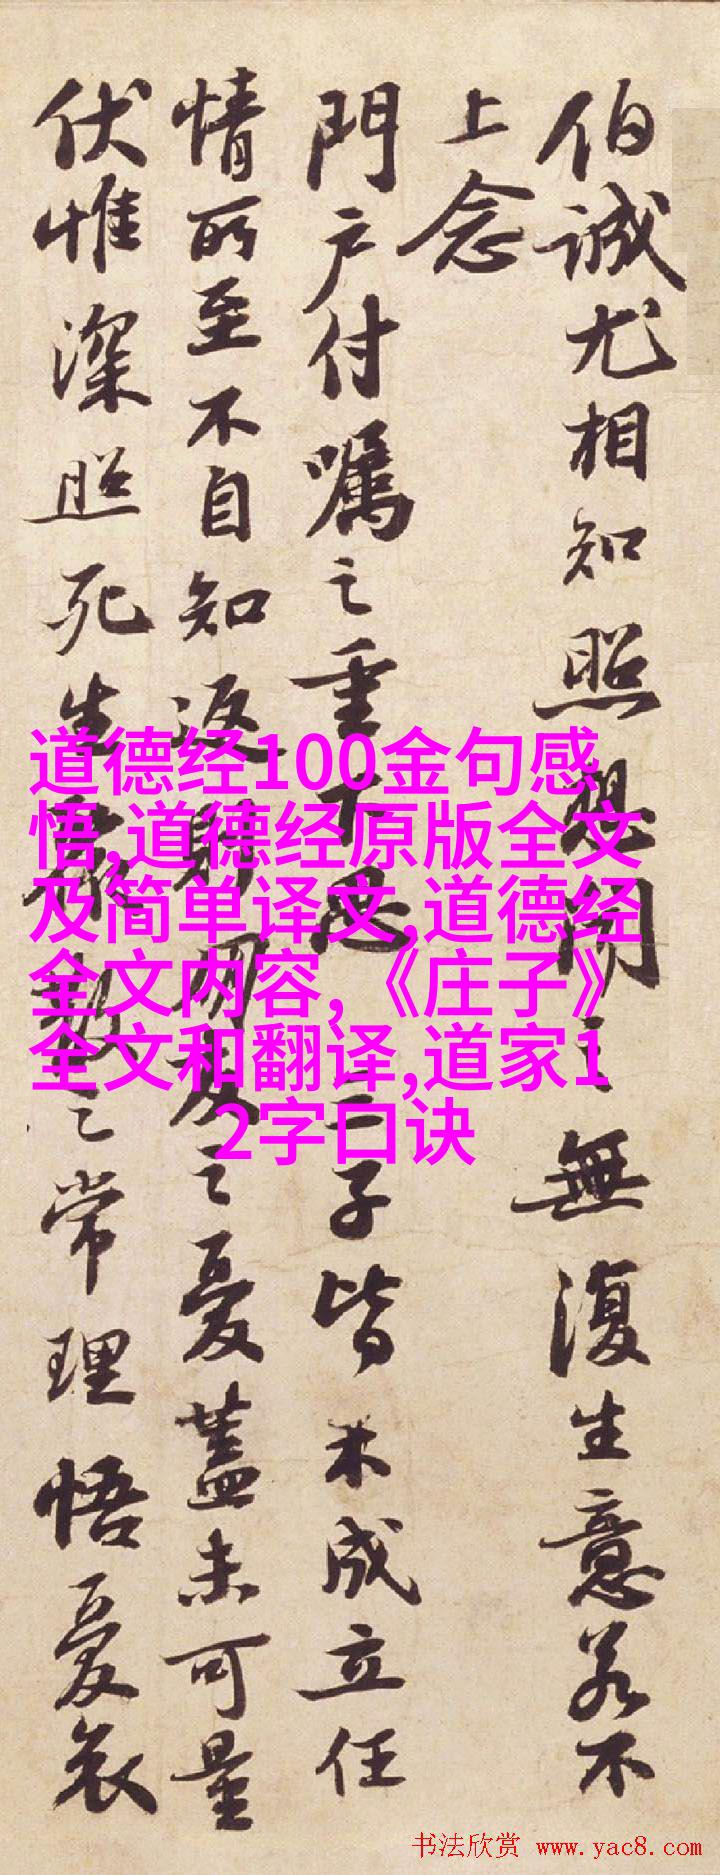 伯誠尤相知照想聞之無復生意若不
上念
門戶付囑之重下思三子皆未成立任
情所至不自知返則朝夕之憂蓋未可量
伏惟深照死生聚散之常理悟憂哀
道德经100金句感
悟,道德经原版全文
及简单译文,道德经
全文内容,《庄子》
全文和翻译,道家1
2字口诀
书法欣赏 www.yac8.com